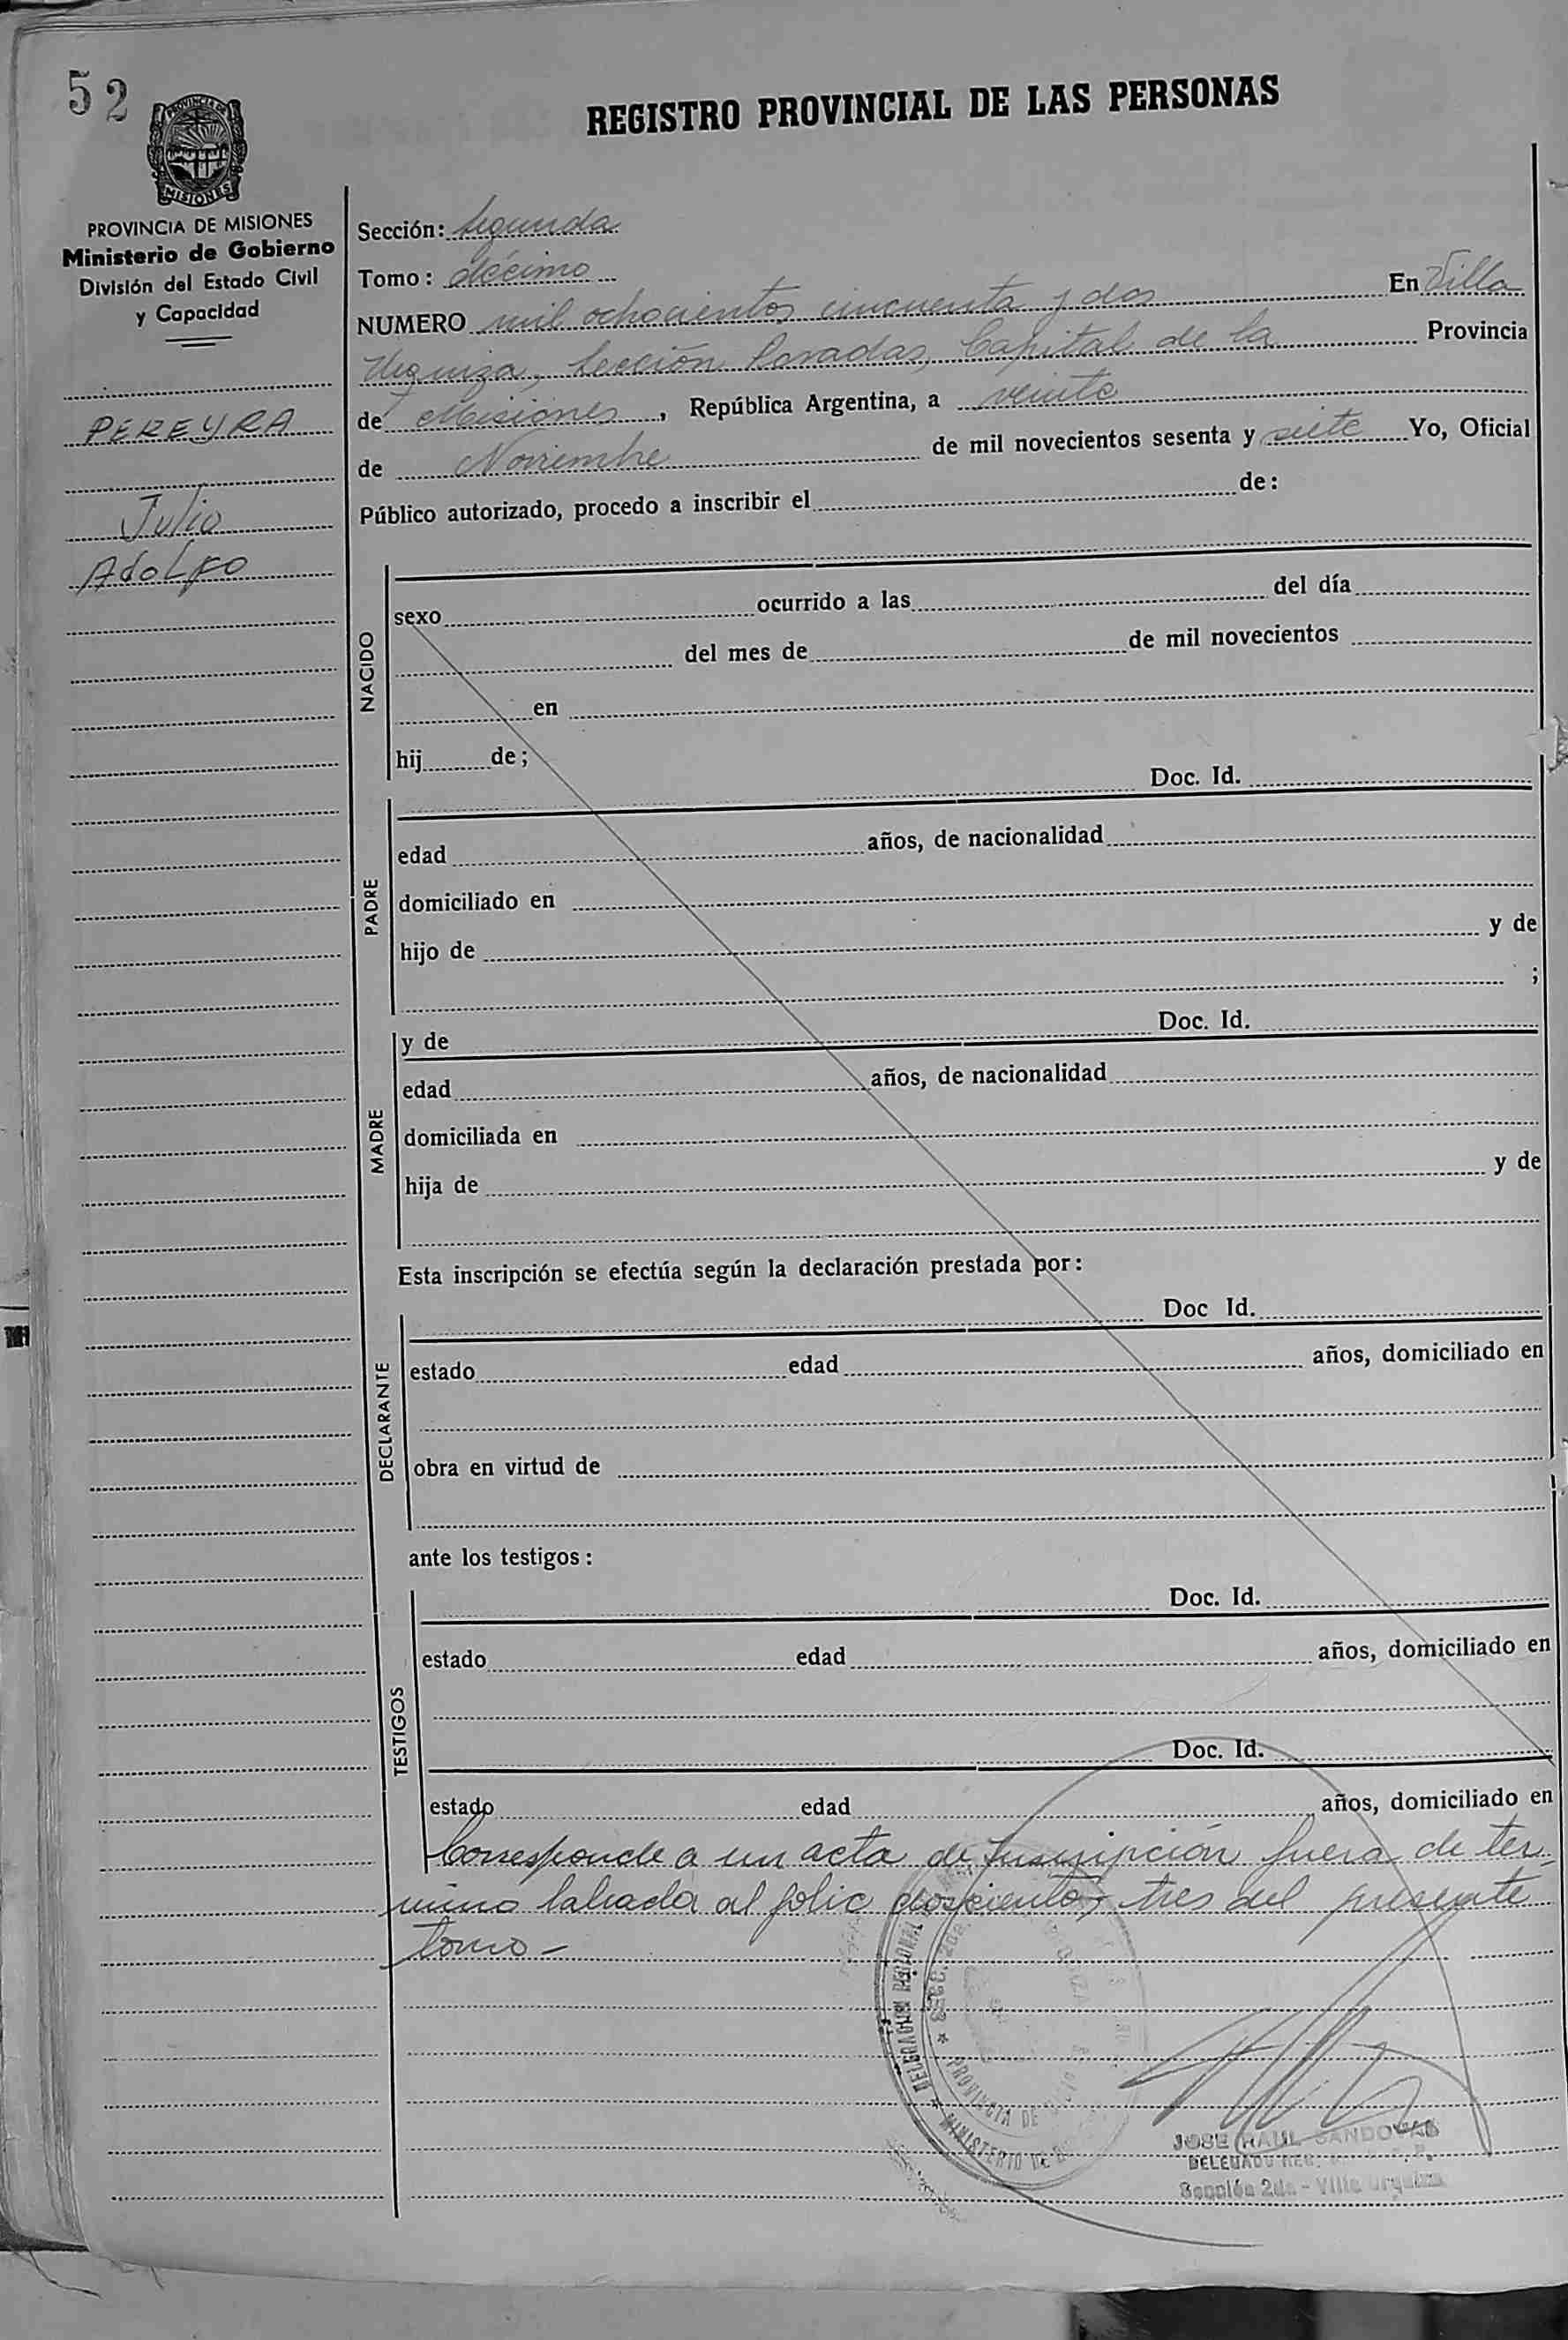 52
REGISTRO PROVINCIAL DE LAS PERSONAS
PROVINCIA DE
MISIONES
PROVINCIA DE MISIONES
Ministerio de Gobierno
División del Estado Civil
y Capacidad
PEREYRA
Julio
Adolfo
Sección: Segunda
Tomo: décimo
NUMERO mil ochocientos cincuenta y dos En Villa
Urquiza, Sección Posadas, Capital de la Provincia
de Misiones, República Argentina, a veinte
de Noviembre de mil novecientos sesenta y siete Yo, Oficial
Público autorizado, procedo a inscribir el de:
NACIDO
sexo ocurrido a las del día
del mes de de mil novecientos
en
hij de;
PADRE
Doc. Id.
edad años, de nacionalidad
domiciliado en
hijo de y de
;
MADRE
y de Doc. Id.
edad años, de nacionalidad
domiciliada en
hija de y de
Esta inscripción se efectúa según la declaración prestada por:
DECLARANTE
Doc Id.
estado edad años, domiciliado en
obra en virtud de
ante los testigos:
TESTIGOS
Doc. Id.
estado edad años, domiciliado en
Doc. Id.
estado edad años, domiciliado en
Corresponde a un acta de Inscripción fuera de ter-
mino labrada al folio doscientos tres del presente
tomo -
DELEGACION REGIONAL
SECC. 2da.
PROVINCIA DE
MINISTERIO DE
JOSE RAUL SANDOVAL
DELEGADO REG.
Sección 2da - Villa Urquiza